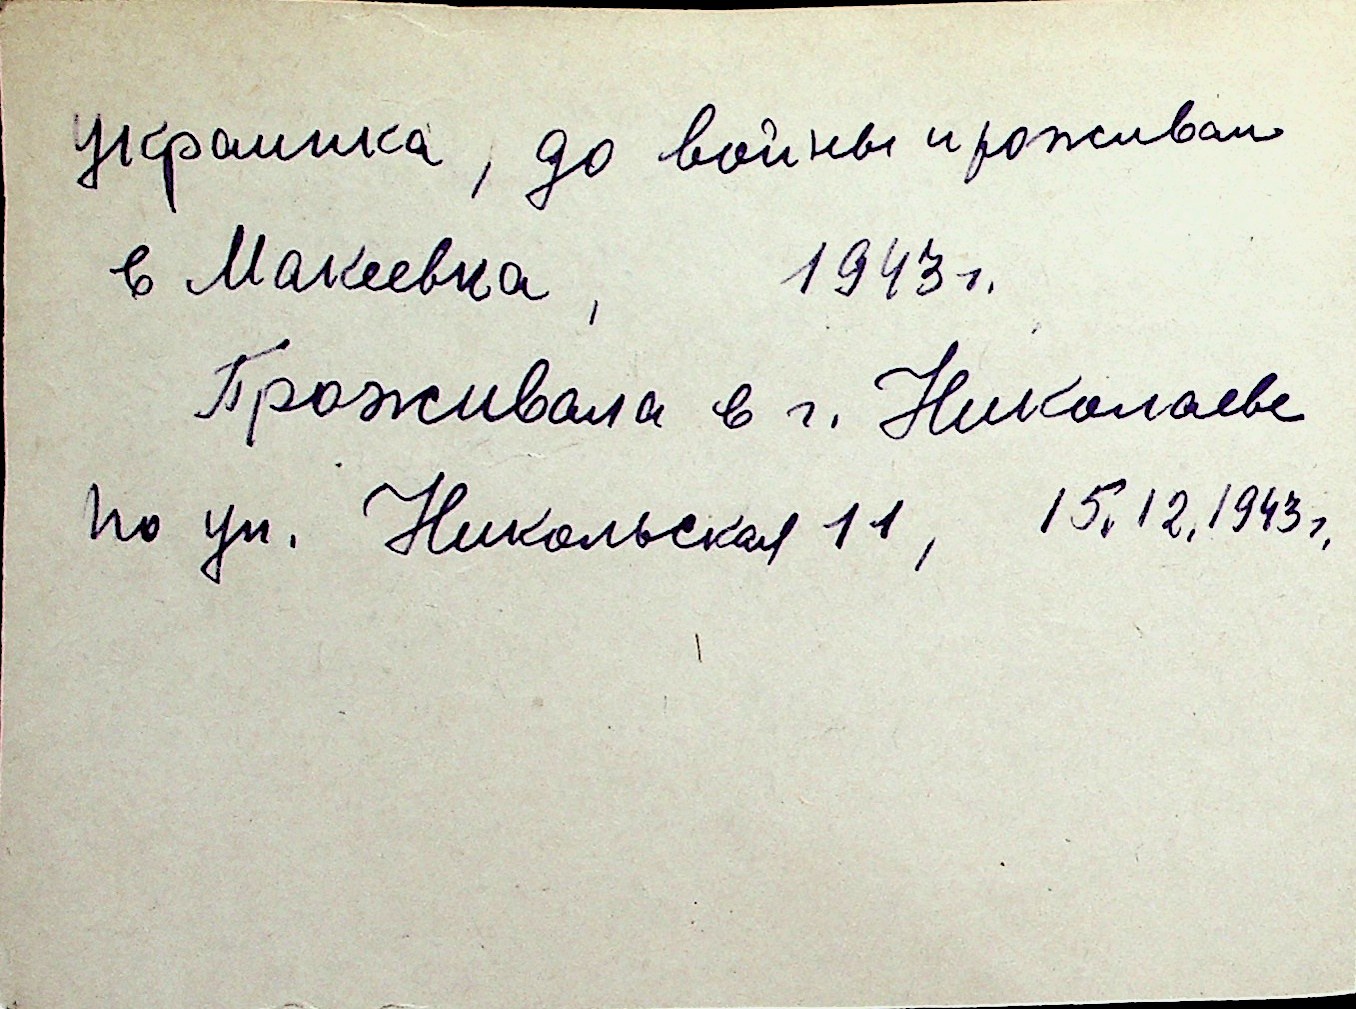 украинка, до войны проживал
в Макеевка, 1943 г.
Проживала в г. Николаеве
по ул. Никольская 11, 15.12.1943 г.